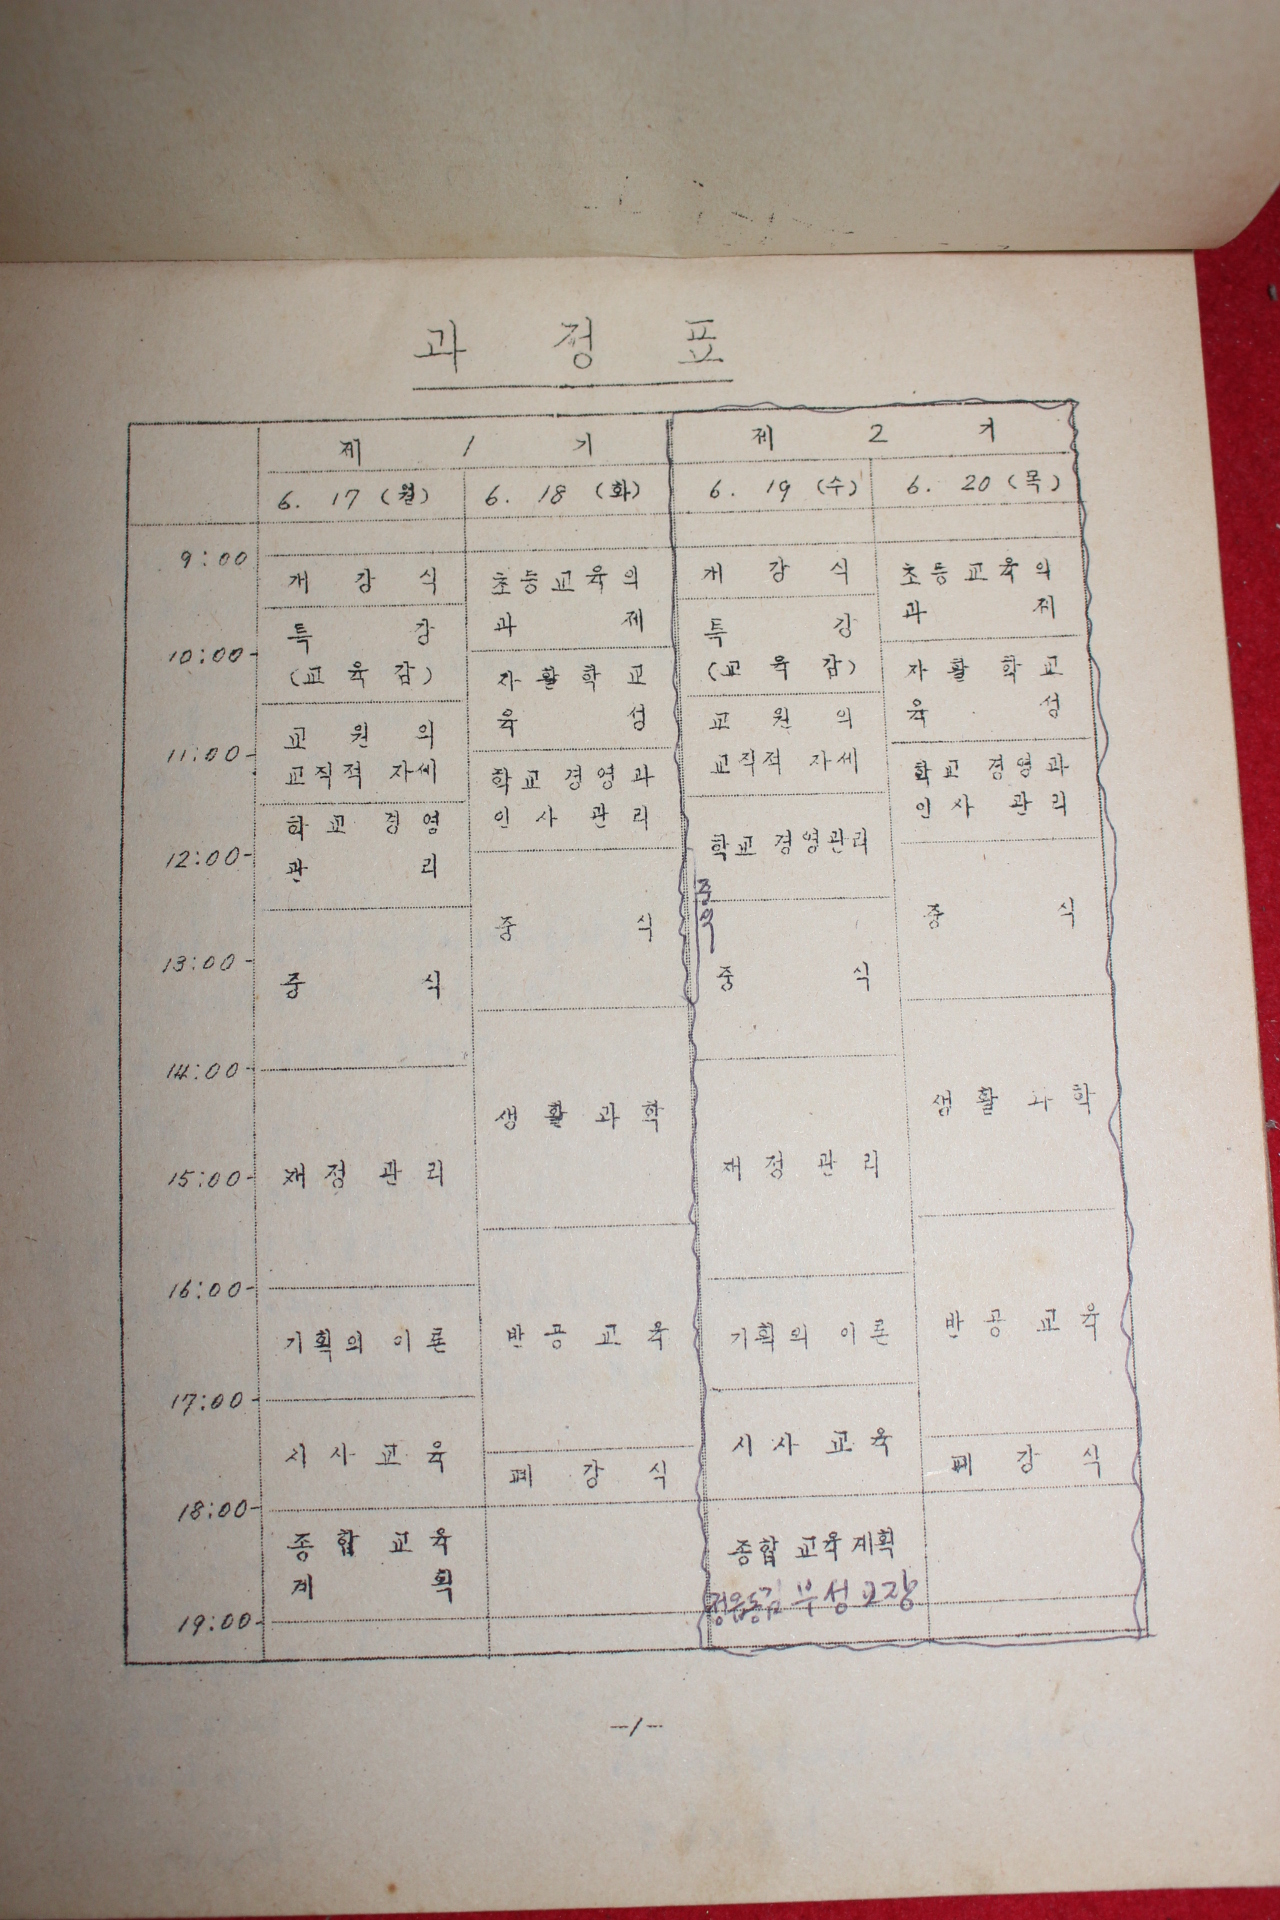 과 정 표
제 1 기
제 2 기
6. 17 (월)
6. 18 (화)
6. 19 (수)
6. 20 (목)
9:00
10:00
11:00
12:00
13:00
14:00
15:00
16:00
17:00
18:00
19:00
개 강 식
특 강
(교 육 감)
교 원 의
교직적 자세
학 교 경 영
관 리
중 식
재 정 관 리
기획의 이 론
시 사 교 육
종 합 교 육
계 획
초등교육의
과 제
자 활 학 교
육 성
학교 경영과
인 사 관 리
중 식
생 활 과 학
반 공 교 육
폐 강 식
개 강 식
특 강
(교 육 감)
교 원 의
교직적 자세
학교 경영관리
중 식
재 정 관 리
기획의 이 론
시 사 교 육
종합 교육계획
부성교장
초등교육의
과 제
자 활 학 교
육 성
학교 경영과
인 사 관 리
중 식
생 활 과 학
반 공 교 육
폐 강 식
-1-